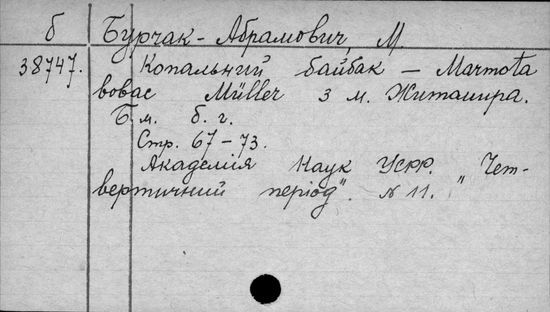 б Бурчак-Абрамович, М.
38747. Копальний байбак — Marmota
bobac Müller з м. Житомира.
Б. м. б. г.
Стр. 67-73.
Академія Наук УСРР. „Чет-
вертичний період". №11.